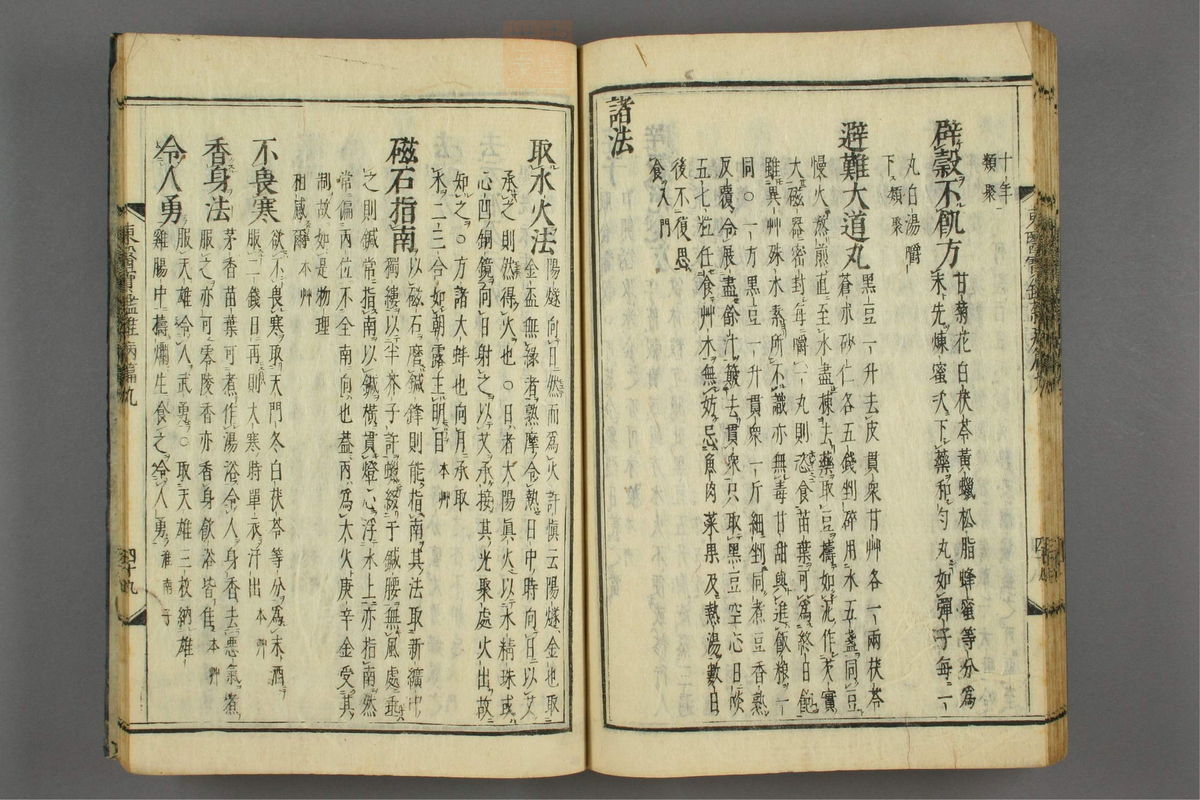 十年
類聚
辟穀不飢方 甘菊花白茯苓黃蠟松脂蜂蜜等分爲
末先煉蜜次下藥和勻丸如彈子每一
丸白湯嚼
下 類聚
避難大道丸 黑豆一升去皮貫衆甘艸各一兩茯苓
蒼朮砂仁各五錢剉碎用水五盞同豆
慢火熬煎直至水盡揀去藥取豆擣如泥作芡實
大磁器密封每嚼一丸則恣食苗葉可爲終日飽
雖異艸殊水素所不識亦無毒甘甜與進飯粮一
同○一方黑豆一升貫衆一斤細剉同煮豆香熟
反覆令展盡餘汁簸去貫衆只取黑豆空心日啖
五七粒任食艸木無妨忌魚肉菜果及熱湯數日
後不復思
食 入門
諸法
取水火法 陽燧向日然而爲火許愼云陽燧金也取
金盃無緣者熟摩令熱日中時向日以艾
承之則然得火也○日者太陽眞火以水精珠或
心凹銅鏡向日射之以艾承接其光聚處火出故
知之○方諸大蚌也向月承取
水二三合如朝露主明目 本艸
磁石指南 以磁石磨鍼鋒則能指南其法取新纊中
獨縷以半芥子許蠟綴于鍼腰無風處垂
之則鍼常指南以鍼橫貫燈心浮水上亦指南然
常偏丙位不全南向也蓋丙爲大火庚辛金受其
制故如是物理
相感爾 本艸
不畏寒 欲不畏寒取天門冬白茯苓等分爲末酒
服二錢日再則大寒時單衣汗出 本艸
香身法 茅香苗葉可煮作湯浴令人身香去惡氣煮
服之亦可零陵香亦香身飮浴皆佳 本艸
令人勇 服天雄令人武勇○取天雄三枚納雄
雞腸中擣爛生食之令人勇 淮南子
東醫寶鑑雜病篇九
四十九